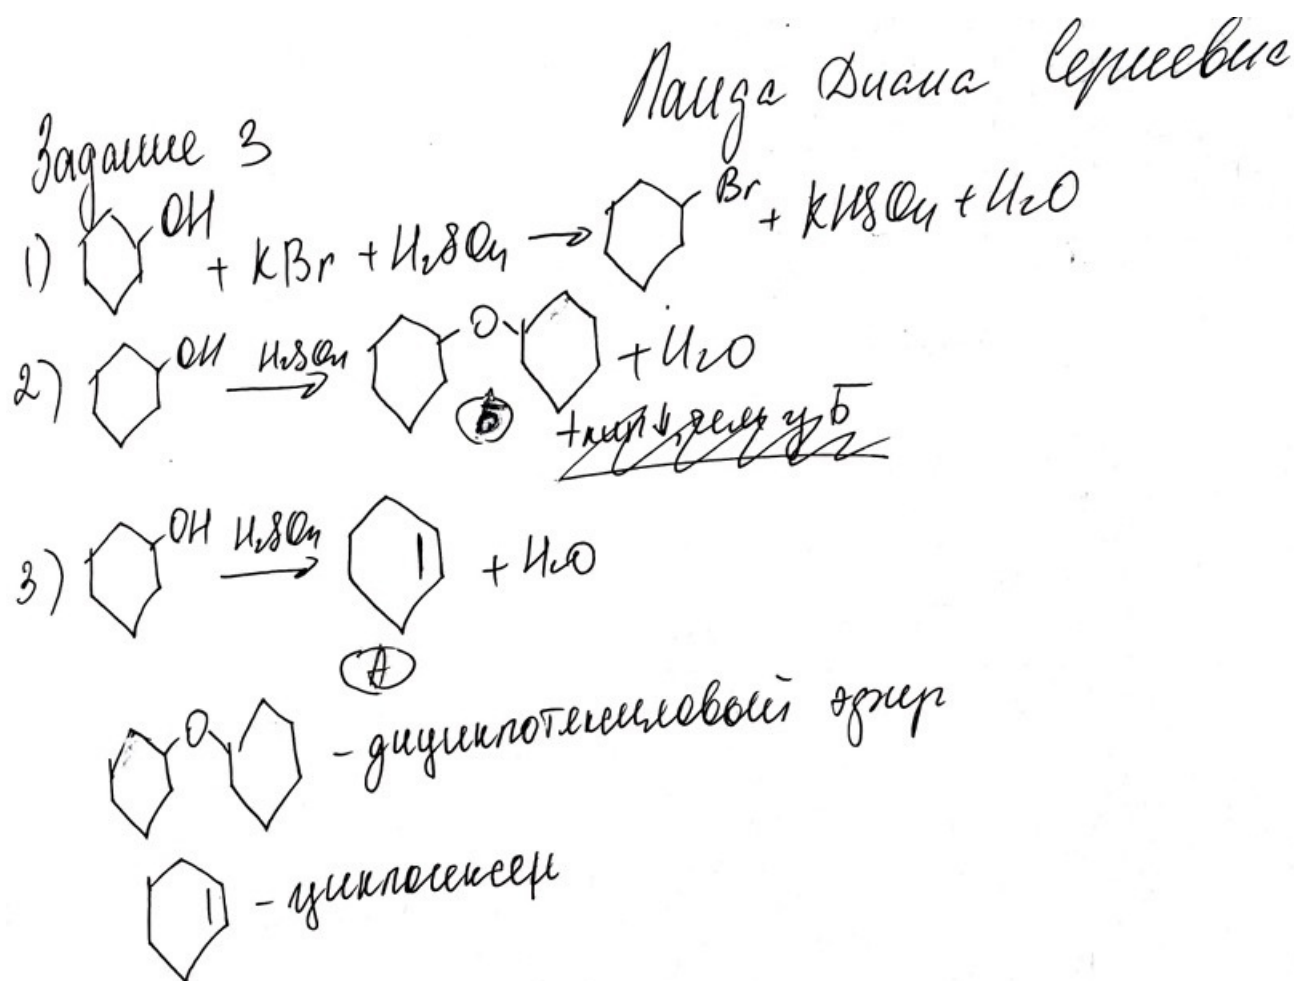 Панда Диана Сергеевна
Задание 3
1) OH + KBr + H₂SO₄ → Br + KHSO₄ + H₂O
2) OH H₂SO₄ → O + H₂O
Б
3) OH H₂SO₄ → + H₂O
А
O - дициклогексиловый эфир
- циклогексен